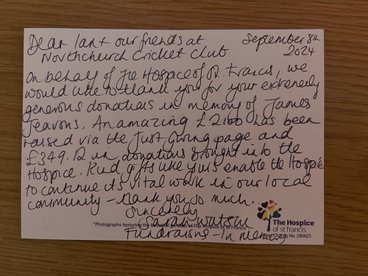 Dear Ian + our friends at
Northchurch Cricket Club
September 8th
2024
On behalf of The Hospice of St Francis, we
would like to thank you for your extremely
generous donations in memory of James
Jeavons. An amazing £2100 has been
raised via the Just Giving page and
£349.12 in donations brought into the
Hospice. Kind gifts like yours enable the Hospice
to continue its vital work in our local
community - thank you so much.
Sincerely
Sarah Watson
Fundraising - In memory
*Photographs featuring the
The Hospice
of st francis
No. 280825